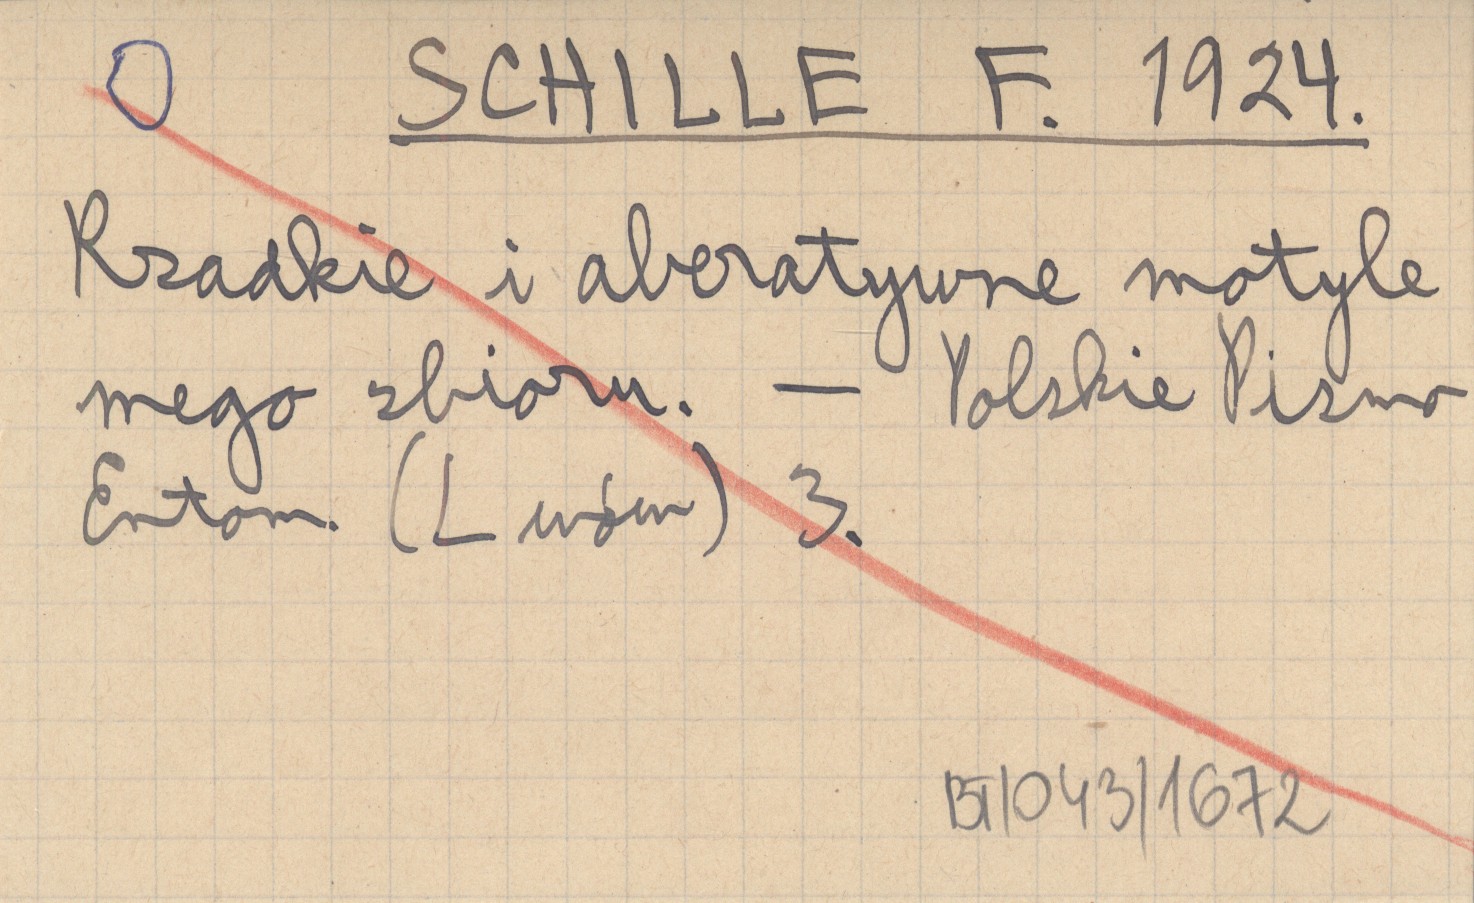 O SCHILLE F. 1924.
Rzadkie i aberatywne motyle
mego zbioru. — Polskie Pismo
Entom. (Lwów) 3.
BT/043/1672